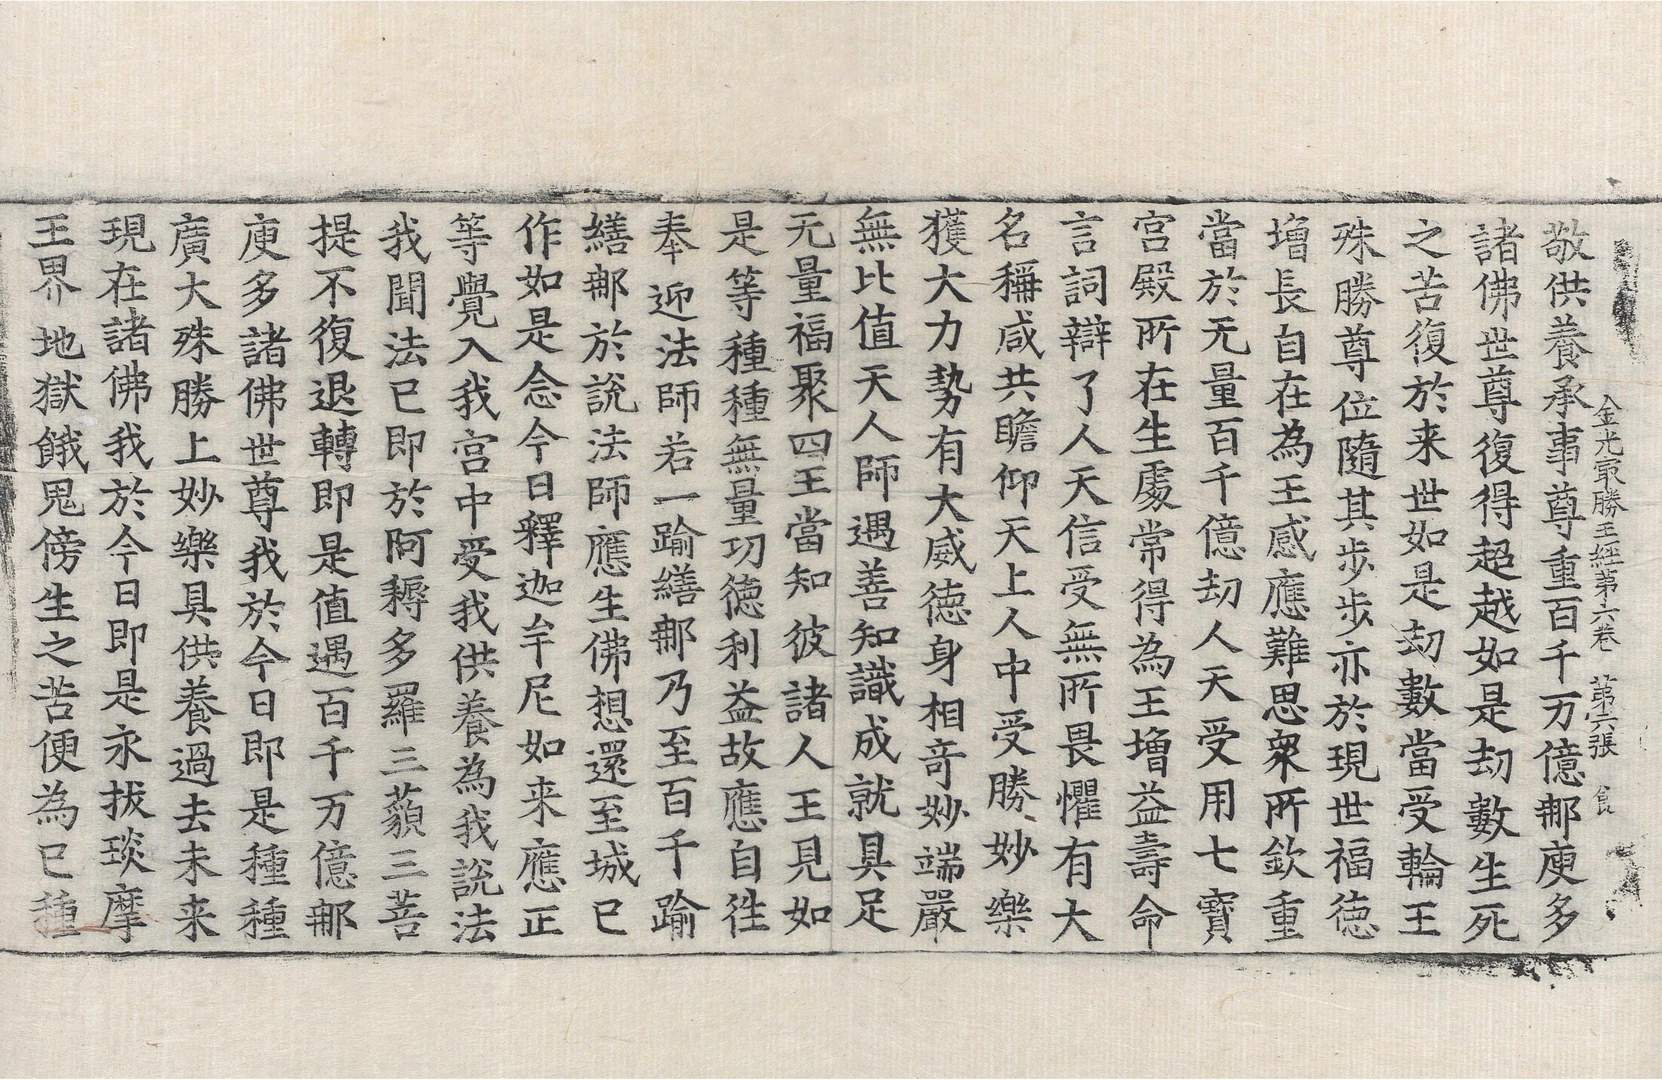 金光最勝王經第六卷 第六張 食
敬供養承事尊重百千万億那庾多
諸佛世尊復得超越如是劫數生死
之苦復於来世如是劫數當受輪王
殊勝尊位隨其步步亦於現世福德
增長自在為王感應難思衆所欽重
當於无量百千億劫人天受用七寶
宮殿所在生處常得為王增益壽命
言詞辯了人天信受無所畏懼有大
名稱咸共瞻仰天上人中受勝妙樂
獲大力勢有大威德身相奇妙端嚴
無比值天人師遇善知識成就具足
无量福聚四王當知彼諸人王見如
是等種種無量功德利益故應自往
奉迎法師若一踰繕那乃至百千踰
繕那於說法師應生佛想還至城已
作如是念今日釋迦牟尼如来應正
等覺入我宮中受我供養為我說法
我聞法已即於阿耨多羅三藐三菩
提不復退轉即是值遇百千万億那
庾多諸佛世尊我於今日即是種種
廣大殊勝上妙樂具供養過去未来
現在諸佛我於今日即是永拔琰摩
王界地獄餓鬼傍生之苦便為已種